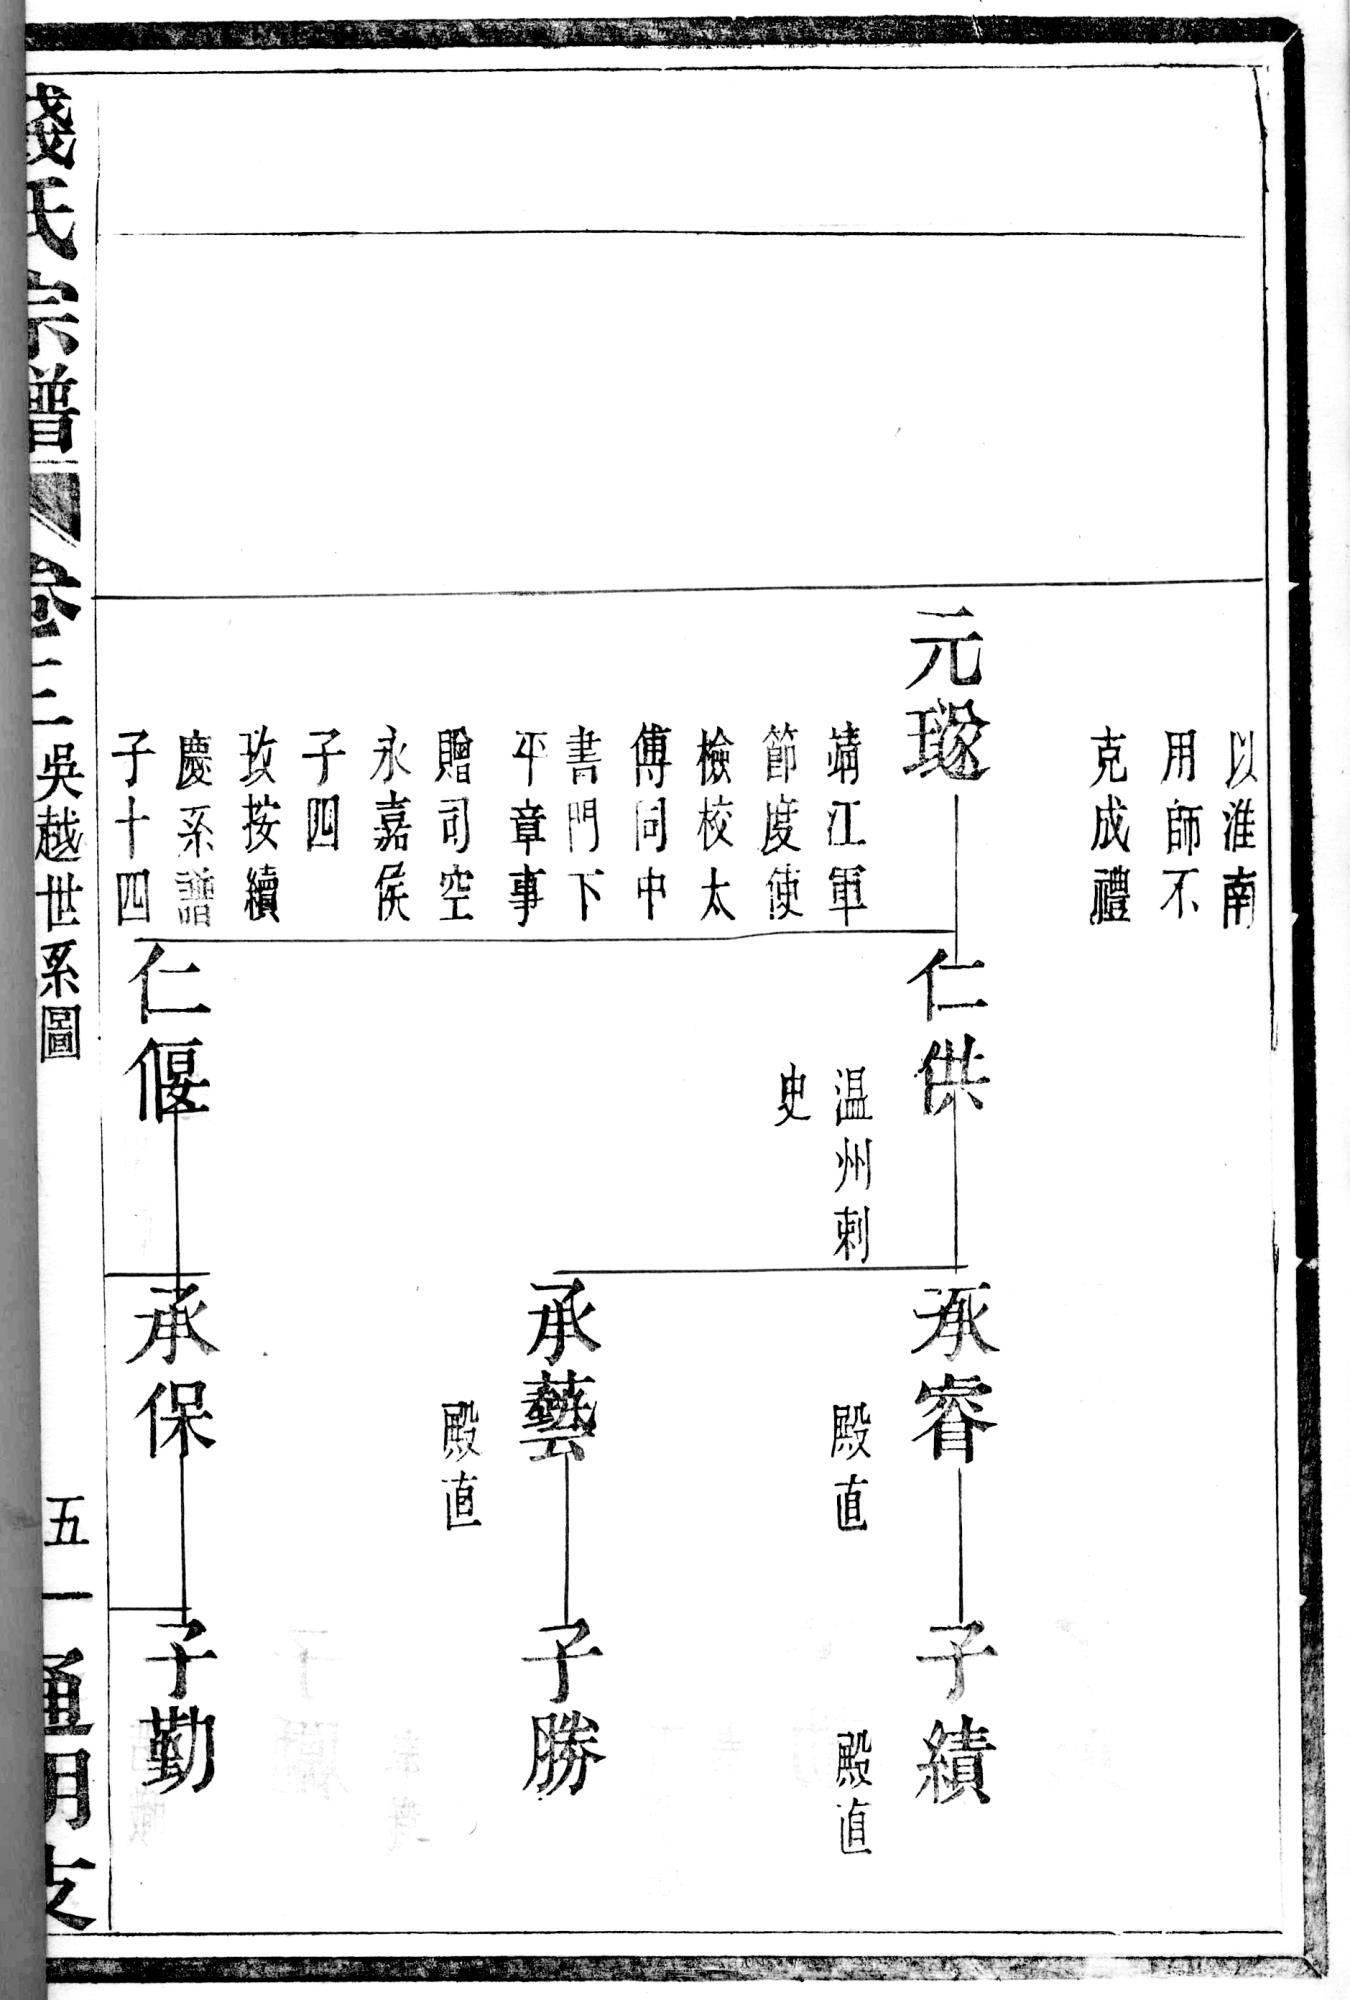 以淮南
用師不
克成禮
元璲
靖江軍
節度使
檢校太
傅同中
書門下
平章事
贈司空
永嘉侯
子四
攷按續
慶系譜
子十四
仁供
温州刺
史
仁偃
承睿
殿直
承藝
殿直
承保
子績
殿直
子勝
子勤
錢氏宗譜
卷三 吳越世系圖
五一 通明支